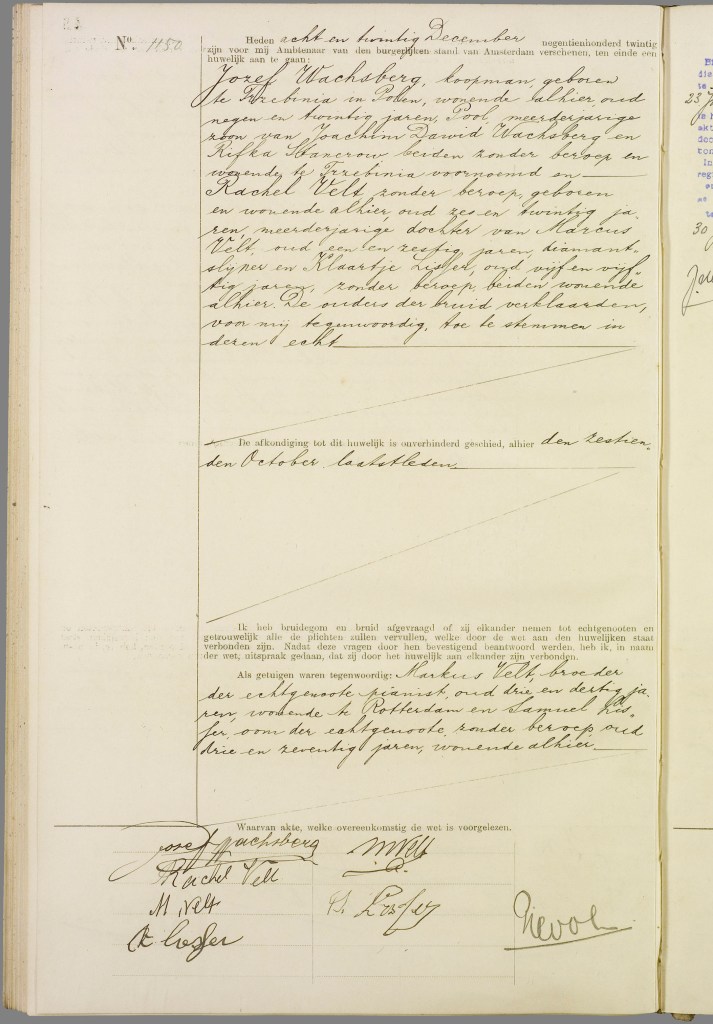 Nº. 1150
Heden acht en twintig December negentienhonderd twintig
zijn voor mij Ambtenaar van den burgerlijken stand van Amsterdam verschenen, ten einde een
huwelijk aan te gaan:
Jozef Wachsberg, koopman, geboren
te Trzebinia in Polen, wonende alhier, oud
negen en twintig jaren, Pool, meerderjarige
zoon van Joachim Dawid Wachsberg en
Rifka Stancrow beiden zonder beroep en
wonende te Trzebinia voornoemd en
Rachel Velt, zonder beroep, geboren
en wonende alhier, oud zes en twintig ja-
ren, meerderjarige dochter van Marcus
Velt, oud een en zestig jaren, diamant-
slijper en Klaartje Lisser, oud vijf en vijf-
tig jaren, zonder beroep, beiden wonende
alhier. De ouders der bruid verklaarden,
voor mij tegenwoordig, toe te stemmen in
deren echt
De afkondiging tot dit huwelijk is onverhinderd geschied, alhier den zestien-
den October laatstleden.
Ik heb bruidegom en bruid afgevraagd of zij elkander nemen tot echtgenooten en
getrouwelijk alle de plichten zullen vervullen, welke door de wet aan den huwelijken staat
verbonden zijn. Nadat deze vragen door hen bevestigend beantwoord werden, heb ik, in naam
der wet, uitspraak gedaan, dat zij door het huwelijk aan elkander zijn verbonden.
Als getuigen waren tegenwoordig: Markus Velt, broeder
der echtgenoote, pianist, oud drie en dertig ja-
ren, wonende te Rotterdam en Samuel Lis-
ser, oom der echtgenoote, zonder beroep, oud
drie en zeventig jaren, wonende alhier.
Waarvan akte, welke overeenkomstig de wet is voorgelezen.
Jozef Wachsberg
M Velt
Rachel Velt
M. Velt
S. Lisser
K Lisser
23
30